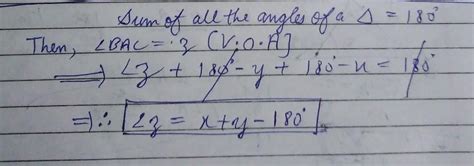 Sum of all the angles of a Δ = 180°
Then, ∠BAC = z [V.O.A]
⟹ ∠z + 180° - y + 180° - x = 180°
⇒ ∴ ∠z = x + y - 180°